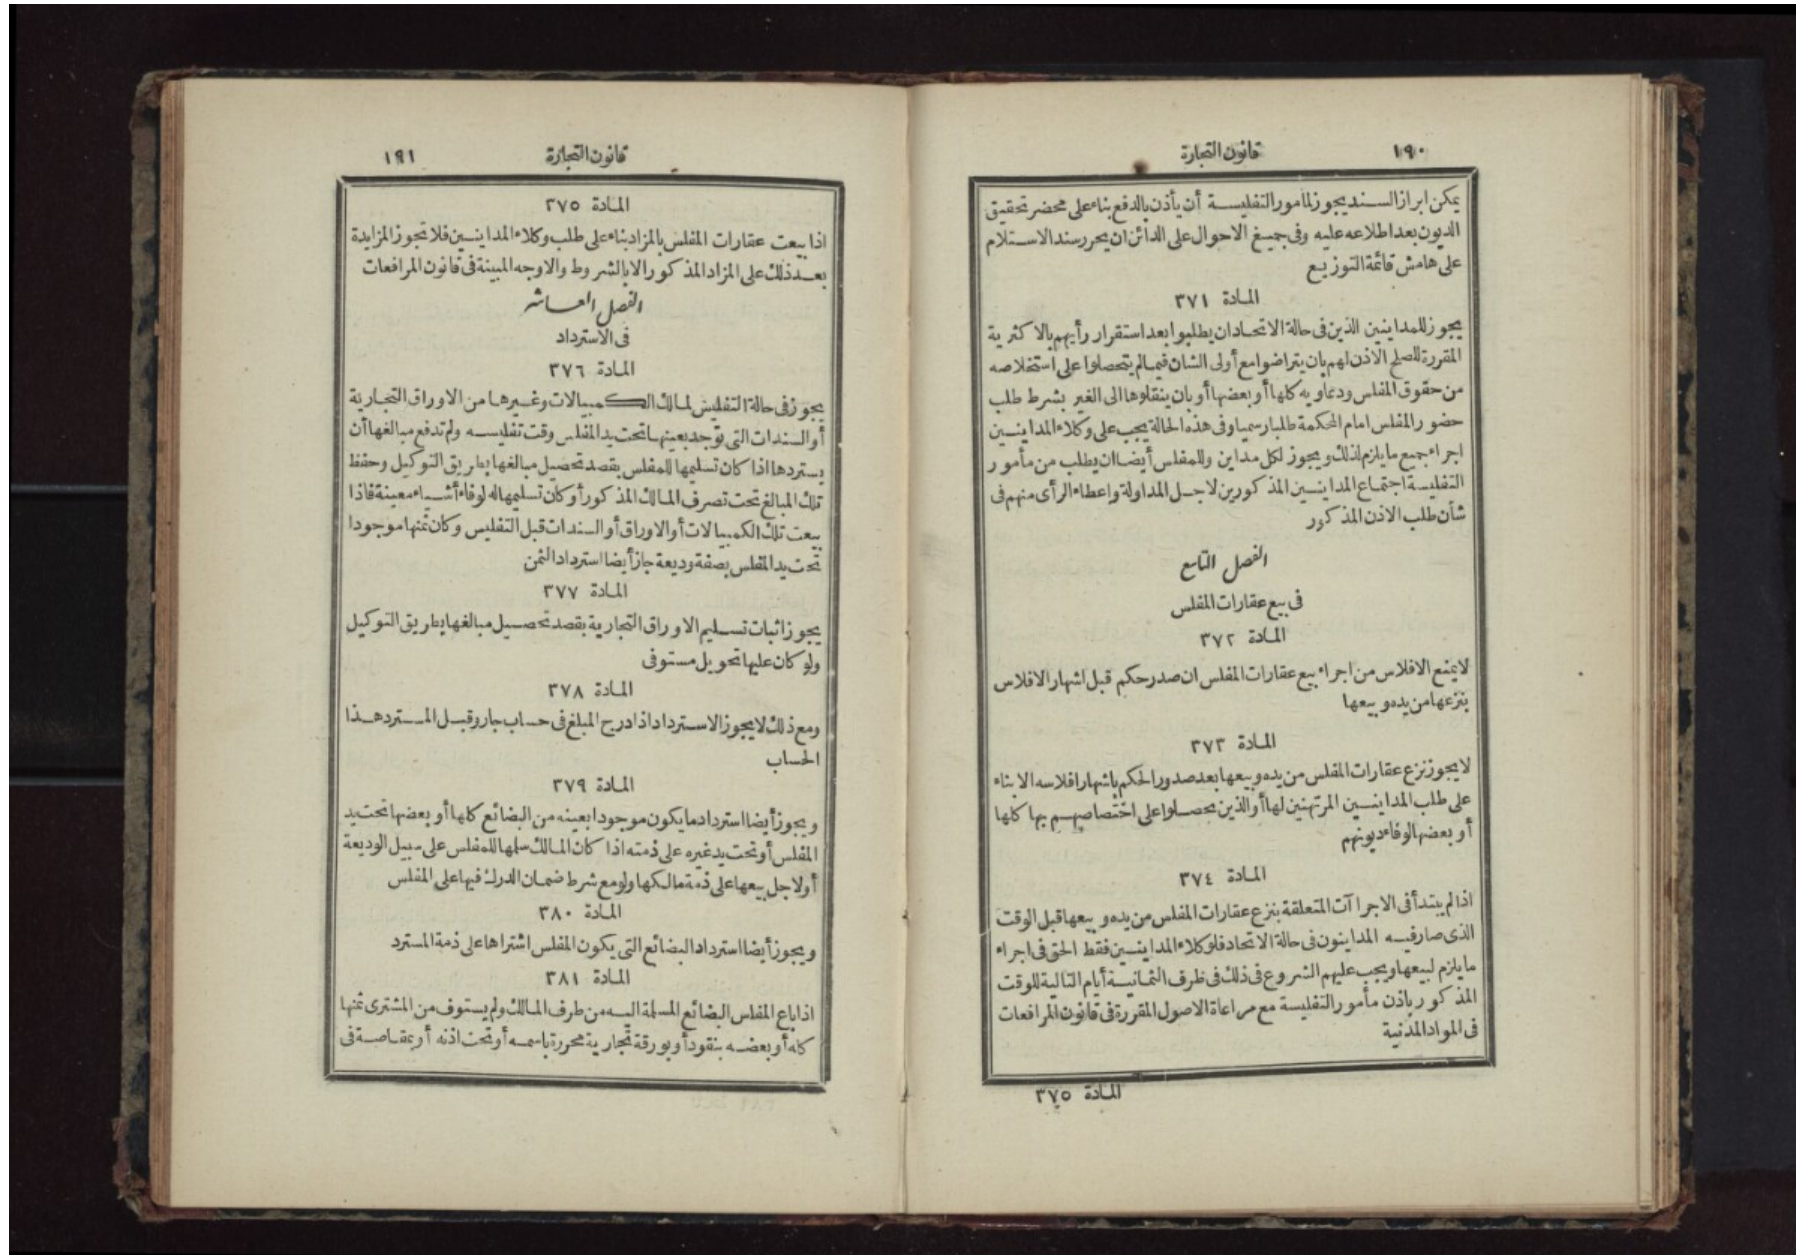 ١٩٠
قانون التجارة
يمكن ابراز السند يجوز لمأمور التفليسة أن يأذن بالدفع بناء على محضر تحقيق
الديون بعد اطلاعه عليه وفى جميع الاحوال على الدائن ان يحرر سند الاستلام
على هامش قائمة التوزيع
المادة ٣٧١
يجوز للمداينين الذين فى حالة الاتحاد ان يطلبوا بعد استقرار رأيهم بالاكثرية
المقررة للصلح الاذن لهم بان يتراضوا مع أولى الشان فيما لم يتحصلوا على استخلاصه
من حقوق المفلس ودعاويه كلها أو بعضها أو بان ينقلوها الى الغير بشرط طلب
حضور المفلس امام المحكمة طلبا رسميا وفى هذه الحالة يجب على وكلاء المداينين
اجراء جميع ما يلزم لذلك ويجوز لكل مداين وللمفلس أيضا ان يطلب من مأمور
التفليسة اجتماع المداينين المذكورين لاجل المداولة واعطاء الرأى منهم فى
شأن طلب الاذن المذكور
الفصل التاسع
فى بيع عقارات المفلس
المادة ٣٧٢
لا يمنع الافلاس من اجراء بيع عقارات المفلس ان صدر حكم قبل اشهار الافلاس
بنزعها من يده وبيعها
المادة ٣٧٣
لا يجوز نزع عقارات المفلس من يده وبيعها بعد صدور الحكم باشهار افلاسه الا بناء
على طلب المداينين المرتهنين لها أو الذين يحصلوا على اختصاصهم بها كلها
أو بعضها لوفاء ديونهم
المادة ٣٧٤
اذا لم يبتدأ فى الاجراآت المتعلقة بنزع عقارات المفلس من يده وبيعها قبل الوقت
الذى صار فيه المداينون فى حالة الاتحاد فلوكلاء المداينين فقط الحق فى اجراء
ما يلزم لبيعها ويجب عليهم الشروع فى ذلك فى ظرف الثمانية أيام التالية للوقت
المذكور باذن مأمور التفليسة مع مراعاة الاصول المقررة فى قانون المرافعات
فى المواد المدنية
المادة ٣٧٥
١٩١
قانون التجارة
المادة ٣٧٥
اذا بيعت عقارات المفلس بالمزاد بناء على طلب وكلاء المداينين فلا تجوز المزايدة
بعد ذلك على المزاد المذكور الا بالشروط والاوجه المبينة فى قانون المرافعات
الفصل العاشر
فى الاسترداد
المادة ٣٧٦
يجوز فى حالة التفليس لمالك الكمبيالات وغيرها من الاوراق التجارية
أو السندات التى توجد بعينها تحت يد المفلس وقت تفليسه ولم تدفع مبالغها أن
يستردها اذا كان تسليمها للمفلس بقصد تحصيل مبالغها بطريق التوكيل وحفظ
تلك المبالغ تحت تصرف المالك المذكور أو كان تسليمها له لوفاء أشياء معينة فاذا
بيعت تلك الكمبيالات أو الاوراق أو السندات قبل التفليس وكان ثمنها موجودا
تحت يد المفلس بصفة وديعة جاز أيضا استرداد الثمن
المادة ٣٧٧
يجوز اثبات تسليم الاوراق التجارية بقصد تحصيل مبالغها بطريق التوكيل
ولو كان عليها تحويل مستوفى
المادة ٣٧٨
ومع ذلك لا يجوز الاسترداد اذا درج المبلغ فى حساب جار وقبل المسترد هذا
الحساب
المادة ٣٧٩
ويجوز أيضا استرداد ما يكون موجودا بعينه من البضائع كلها أو بعضها تحت يد
المفلس أو تحت يد غيره على ذمته اذا كان المالك سلمها للمفلس على سبيل الوديعة
أو لاجل بيعها على ذمة مالكها ولو مع شرط ضمان الدرك فيها على المفلس
المادة ٣٨٠
ويجوز أيضا استرداد البضائع التى يكون المفلس اشتراها على ذمة المسترد
المادة ٣٨١
اذا باع المفلس البضائع المسلمة اليه من طرف المالك ولم يستوف من المشترى ثمنها
كله أو بعضه بنقود أو بورقة تجارية محررة باسمه أو تحت اذنه أو بمقاصة فى